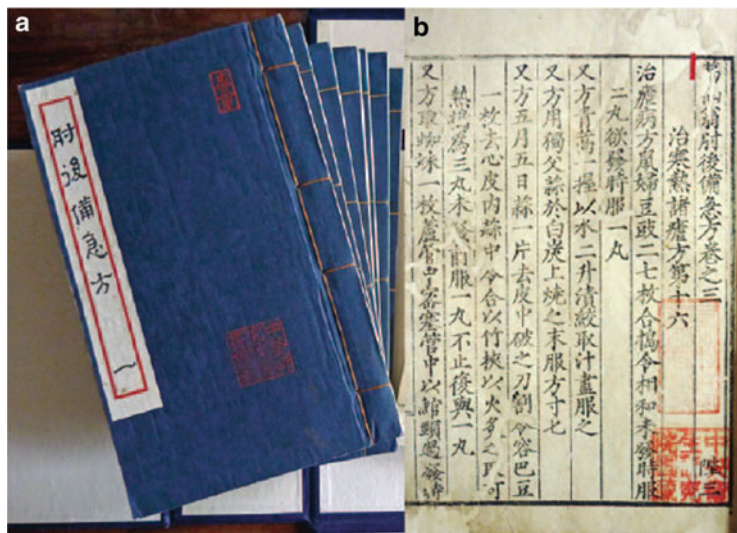 a
肘後備急方
一
b
葛仙翁肘後備急方卷之三
治寒熱諸瘧方第十六
治瘧病方鼠婦豆豉二七枚合搗令相和未發時服
二丸欲發時服一丸
又方青蒿一握以水二升漬絞取汁盡服之
又方用獨父蒜於白炭上燒之末服方寸匕
又方五月五日蒜一片去皮中破之刀割令容巴豆
一枚去心皮內蒜中令合以竹挾以火炙之取可
熱搗為三丸未發前服一丸不止復與一丸
又方取蜘蛛一枚蘆管中密塞管中以綰頸過發時